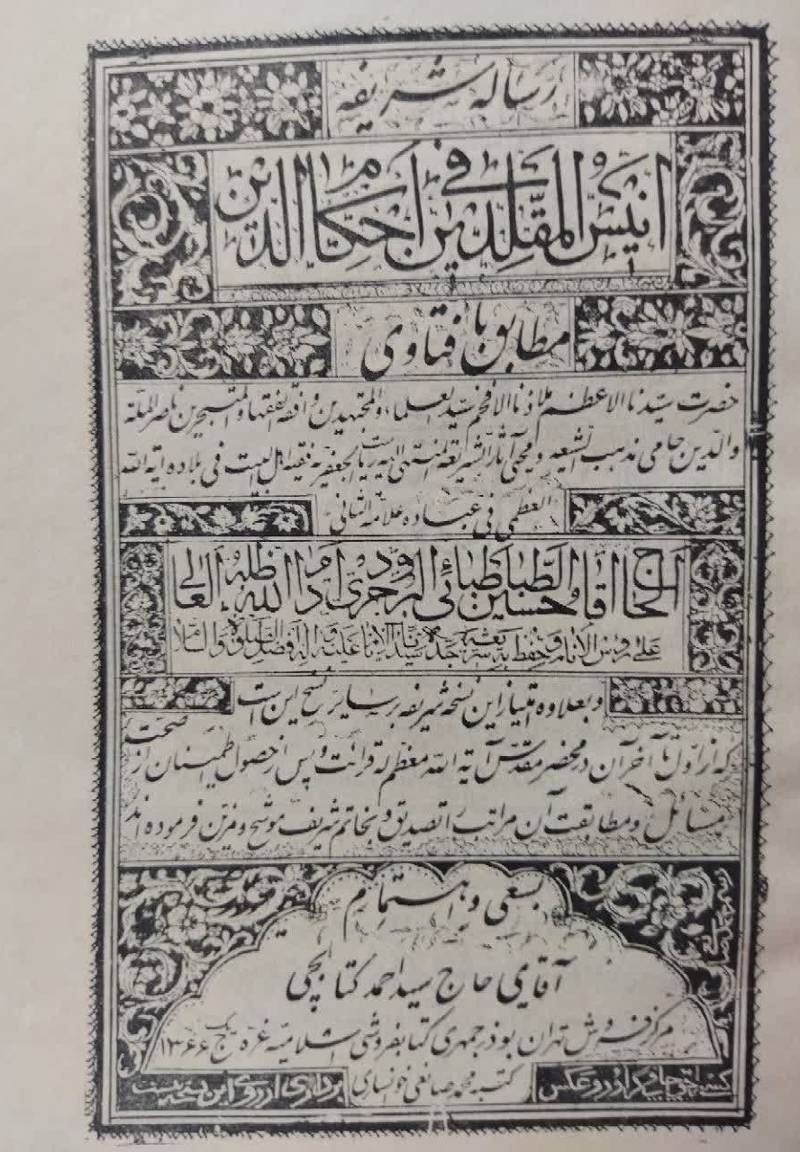 رساله شریفه
انیس المقلدین فی احکام الدین
مطابق با فتاوی
حضرت سیدنا الاعظم ملاذنا الافخم سید العلماء والمجتهدین وافقه الفقهاء والمتبحرین ناصر الملة
والدین حامی مذهب الشیعه ومحیی آثار الشریعة المنتهی الیه ریاست الجعفریه فقیه اهل البیت فی بلاده آیة الله
العظمی فی عباده علامة الثانی
الحاج آقا حسین الطباطبائی البروجردی ادام الله ظله العالی
علی رؤس الانام وحفظ به شریعة جده سید الانام علیه وآله افضل الصلوة والسلام
وبعلاوه امتیاز این نسخه شریفه بر سایر نسخ این است
که از اول تا آخر آن در محضر مقدس آیة الله معظم له قرائت و پس از حصول اطمینان از صحت
مسائل و مطابقت آن مراتب را تصدیق و بخاتم شریف موشح و مزین فرموده اند
بسعی و اهتمام
آقای حاج سید احمد کتابچی
مرکز فروش تهران بوذرجمهری کتابفروشی اسلامیه غره ج ۱۳۶۶
کسی حق چاپ گراور و عکس
کتبه محمد صانعی خوانساری
برداری از روی این نسخه نیست